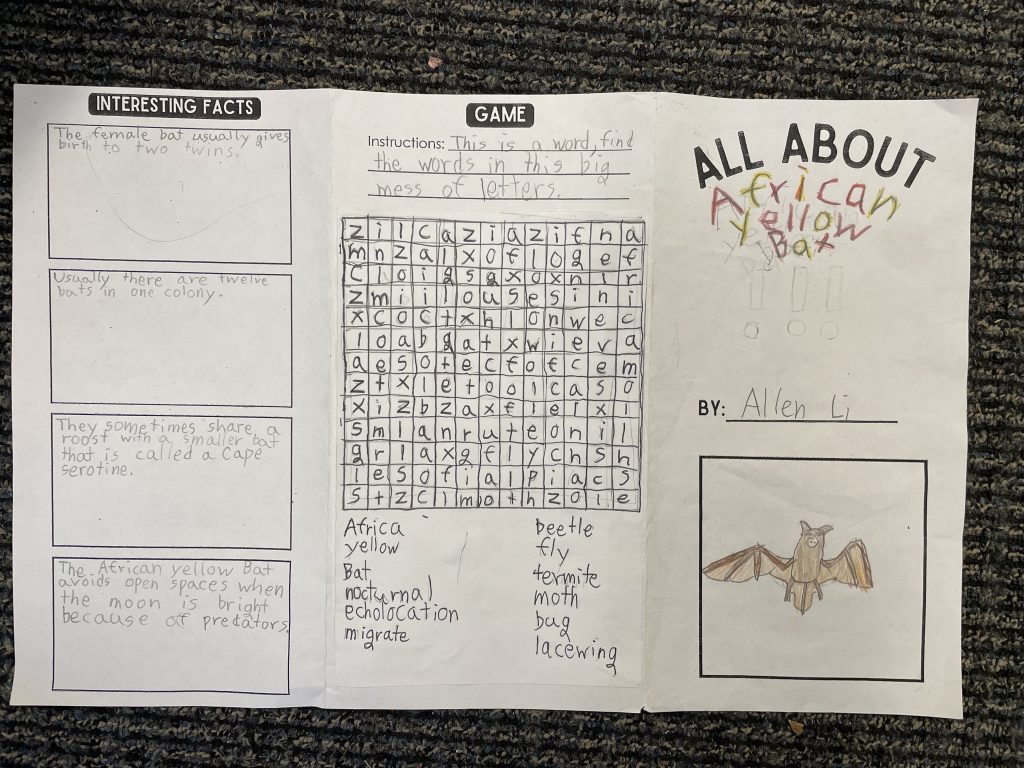 INTERESTING FACTS
The female bat usually gives
birth to two twins.
Usually there are twelve
bats in one colony.
They sometimes share a
roost with a smaller bat
that is called a Cape
serotine.
The African yellow Bat
avoids open spaces when
the moon is bright
because of predators.
GAME
Instructions: This is a word, find
the words in this big
mess of letters.
z i l c a z i a z i f n a
m n z a l x o f l o g e f
c l o i g s g x o x n i r
z m i i l o u s e s i n i
x c o c t x h l o n w e c
l o a b g a t x w i e v a
a e s o t e c f o f c e m
z t x l e t o o l c a s o
x i z b z a x f l e l x l
s m l a n r u t e o n i l
g r l a x g f l y c h s h
l e s o f i a l p i a c s
s t z c l m o t h z o l e
Africa
yellow
Bat
nocturnal
echolocation
migrate
beetle
fly
termite
moth
bug
lacewing
ALL ABOUT
African
yellow
Bat
!!!
BY: Allen Li